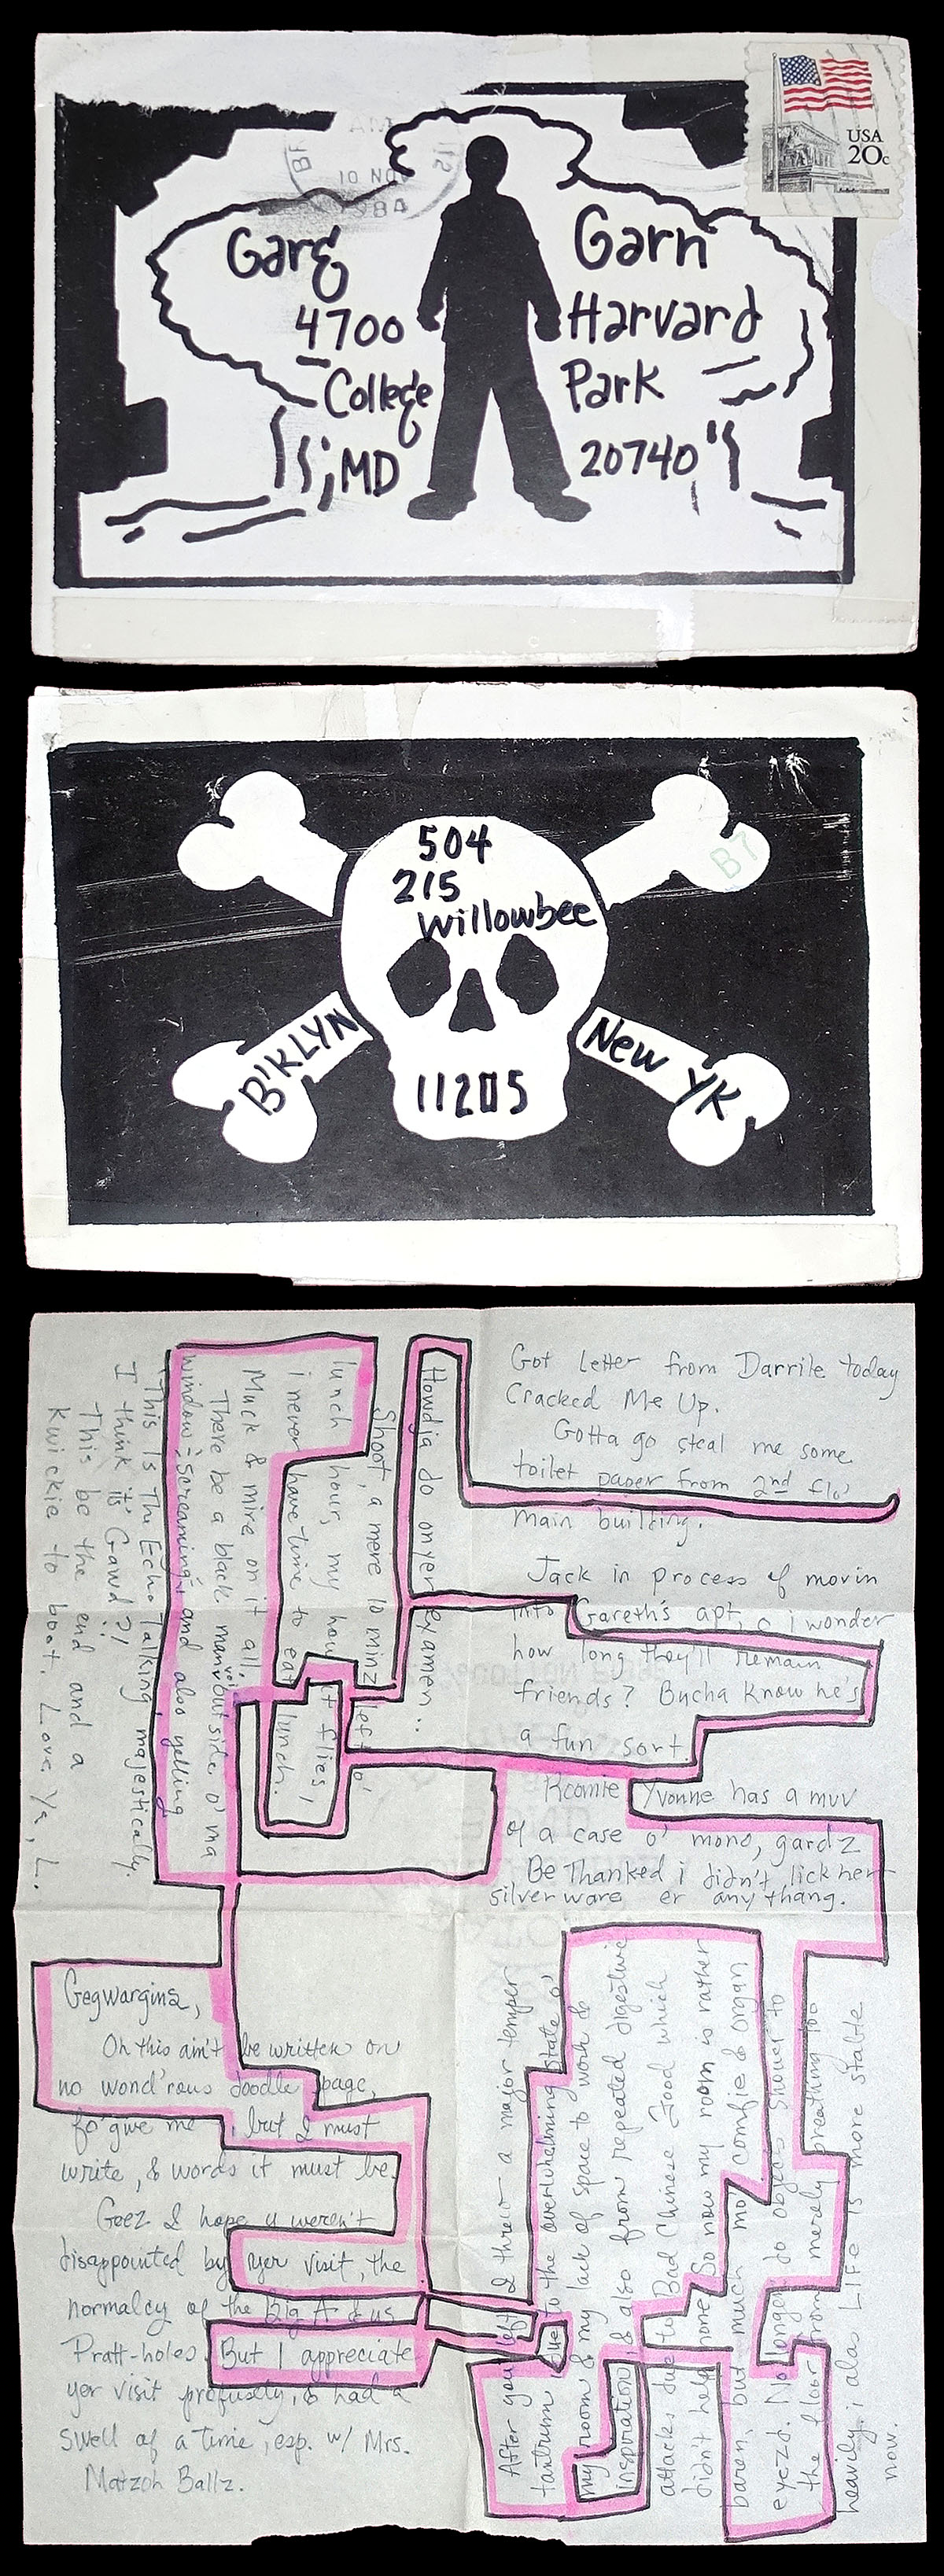 USA
20c
10 NOV
1984
Garẽ Garn
4700 Harvard
College Park
MD 20740
504
215
Willowbee
B'KLYN
New YK
11205
B7
Gegwargins,
Oh this ain't be written on
no wond'rous doodle page,
fo'give me, but I must
write, & words it must be.
Geez I hope u weren't
disappointed by yer visit, the
normalcy of the Big A & us
Pratt-holes. But I appreciate
yer visit profusely, & had a
swell of a time, esp. w/ Mrs.
Matzoh Ballz.
After you left I threw a major temper
tantrum due to the overwhelming state o'
my room & my lack of space to work &
inspiration, & also from repeated digestive
attacks due to Bad Chinese Food which
didn't help none. So now my room is rather
baren, but much mo' comfie & organ
eyezd. No longer do objects shower to
the floor from merely breathing too
heavily. i alas LIFE is more stable
now.
Got letter from Darrile today
Cracked Me Up.
Gotta go steal me some
toilet paper from 2nd flo'
main building.
Jack in process of movin
into Gareth's apt, i wonder
how long they'll remain
friends? Bucha Know he's
a fun sort.
Roomie Yvonne has a muv
of a case o' mono, gardz
Be Thanked i didn't lick her
silverware er any thang.
Howdja do on yer eyamen..
Shoot, a mere 10 minz left o'
lunch hour, my how it flies,
i never have time to eat lunch.
Muck & mire on it all.
There be a black man's voice outside o' ma
window: screaming, and also yelling
"This Is The Echo Talking, majestically.
I think it's Gawd?!
This be the end and a
Kwickie to boot. Love Ya, L.